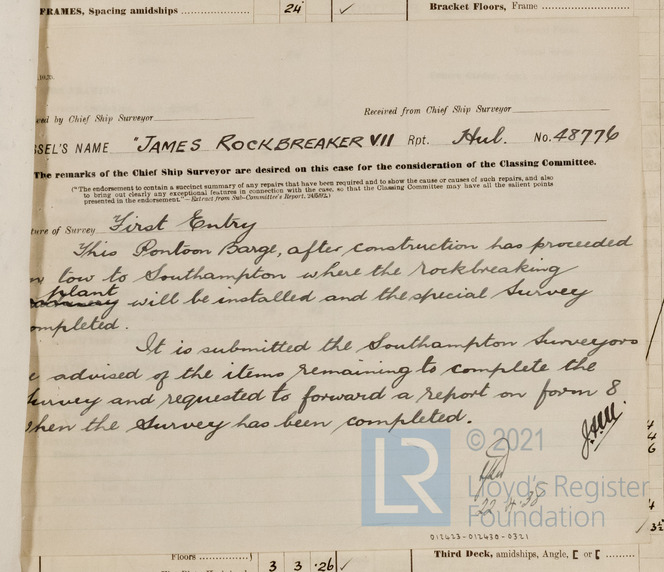 FRAMES, Spacing amidships 24 ✓
Bracket Floors, Frame
.10.20.
Received from Chief Ship Surveyor
ed by Chief Ship Surveyor
SSEL'S NAME "JAMES ROCKBREAKER VII Rpt. Hul. No. 48776
The remarks of the Chief Ship Surveyor are desired on this case for the consideration of the Classing Committee.
("The endorsement to contain a succinct summary of any repairs that have been required and to show the cause or causes of such repairs, and also
to bring out clearly any exceptional features in connection with the case, so that the Classing Committee may have all the salient points
presented in the endorsement."—Extract from Sub-Committee's Report, 24/5/92.)
ture of Survey First Entry
This Pontoon Barge, after construction has proceeded
n tow to Southampton where the rockbreaking
plant
will be installed and the special Survey
ompleted.
It is submitted the Southampton Surveyors
e advised of the items remaining to complete the
Survey and requested to forward a report on form 8
when the Survey has been completed.
22.4.38
LR
© 2021
Lloyd's Register
Foundation
012423-012430-0321
4
4
6
4
3½
Floors 3 3 .26 ✓
Third Deck, amidships, Angle, [ or [